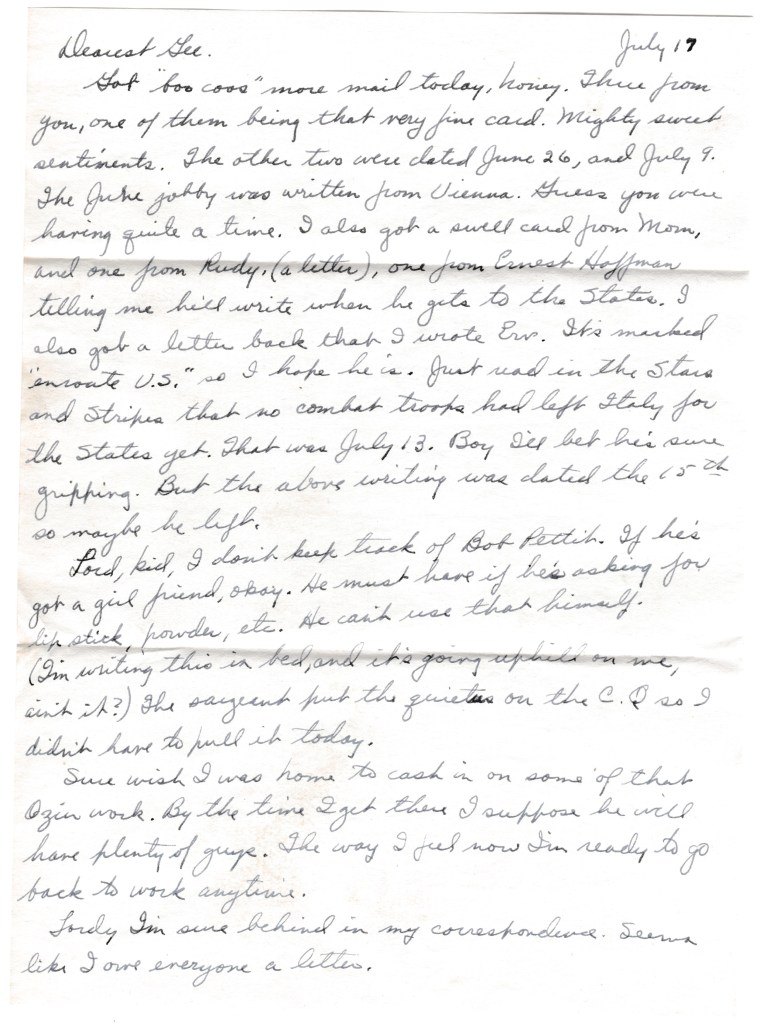 Dearest Gee. July 17
Got "boo coos" more mail today, honey. Three from
you, one of them being that very fine card. Mighty sweet
sentiments. The other two were dated June 26, and July 9.
The June jobby was written from Vienna. Guess you were
having quite a time. I also got a swell card from Mom,
and one from Rudy, (a letter), one from Ernest Hoffman
telling me he'll write when he gets to the States. I
also got a letter back that I wrote Erv. It's marked
"enroute U.S." so I hope he is. Just read in the Stars
and Stripes that no combat troops had left Italy for
the States yet. That was July 13. Boy I'll bet he's sure
gripping. But the above writing was dated the 15th
so maybe he left.
Lord, kid, I don't keep track of Bob Pettit. If he's
got a girl friend, okay. He must have if he's asking for
lip stick, powder, etc. He can't use that himself.
(I'm writing this in bed, and it's going uphill on me,
ain't it?) The sargeant put the quietus on the C.Q so I
didn't have to pull it today.
Sure wish I was home to cash in on some of that
work. By the time I get there I suppose he will
have plenty of guys. The way I feel now I'm ready to go
back to work anytime.
Lordy I'm sure behind in my correspondence. Seems
like I owe everyone a letter.